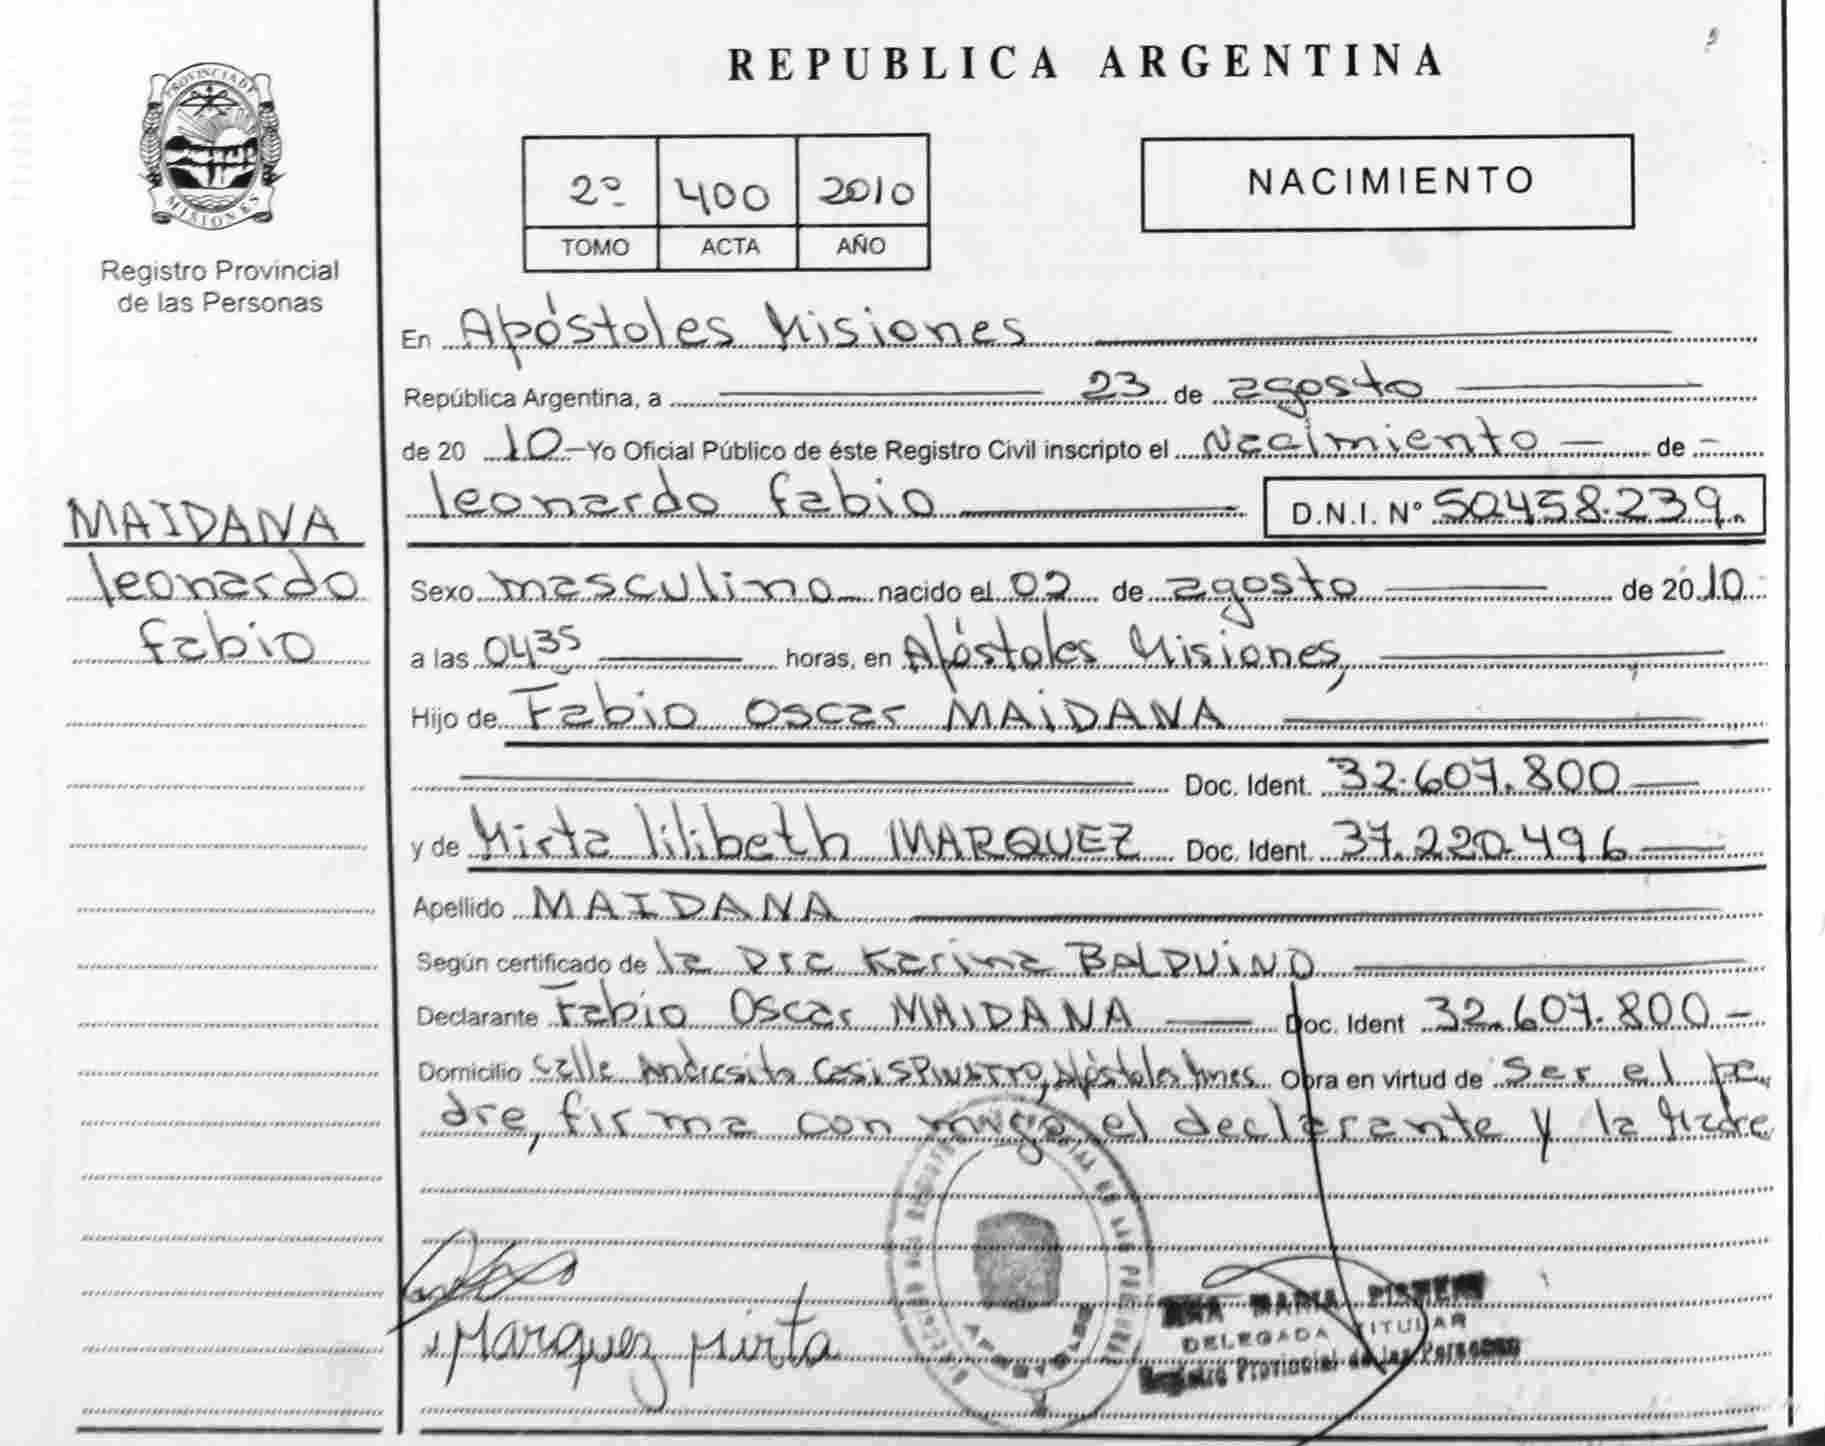 REPUBLICA ARGENTINA
PROVINCIA DE
MISIONES
Registro Provincial
de las Personas
2º 400 2010
TOMO ACTA AÑO
NACIMIENTO
En Apóstoles Misiones
República Argentina, a 23 de agosto
de 20 10 Yo Oficial Público de éste Registro Civil inscripto el Nacimiento de
leonardo fabio D.N.I. Nº 50.458.239.
MAIDANA
leonardo
fabio
Sexo masculino nacido el 02 de agosto de 20 10
a las 04 35 horas, en Apóstoles Misiones,
Hijo de Fabio Oscar MAIDANA
Doc. Ident. 32.607.800
y de Mirta lilibeth MARQUEZ Doc. Ident. 37.220.496
Apellido MAIDANA
Según certificado de la Dra Karina BALDUINO
Declarante Fabio Oscar MAIDANA Doc. Ident 32.607.800
Domicilio calle Andresito Apóstoles Obra en virtud de ser el pa
dre, firma con migo el declarante y la Madre
Marquez Mirta
ANA MARIA
DELEGADA TITULAR
Registro Provincial de las Personas